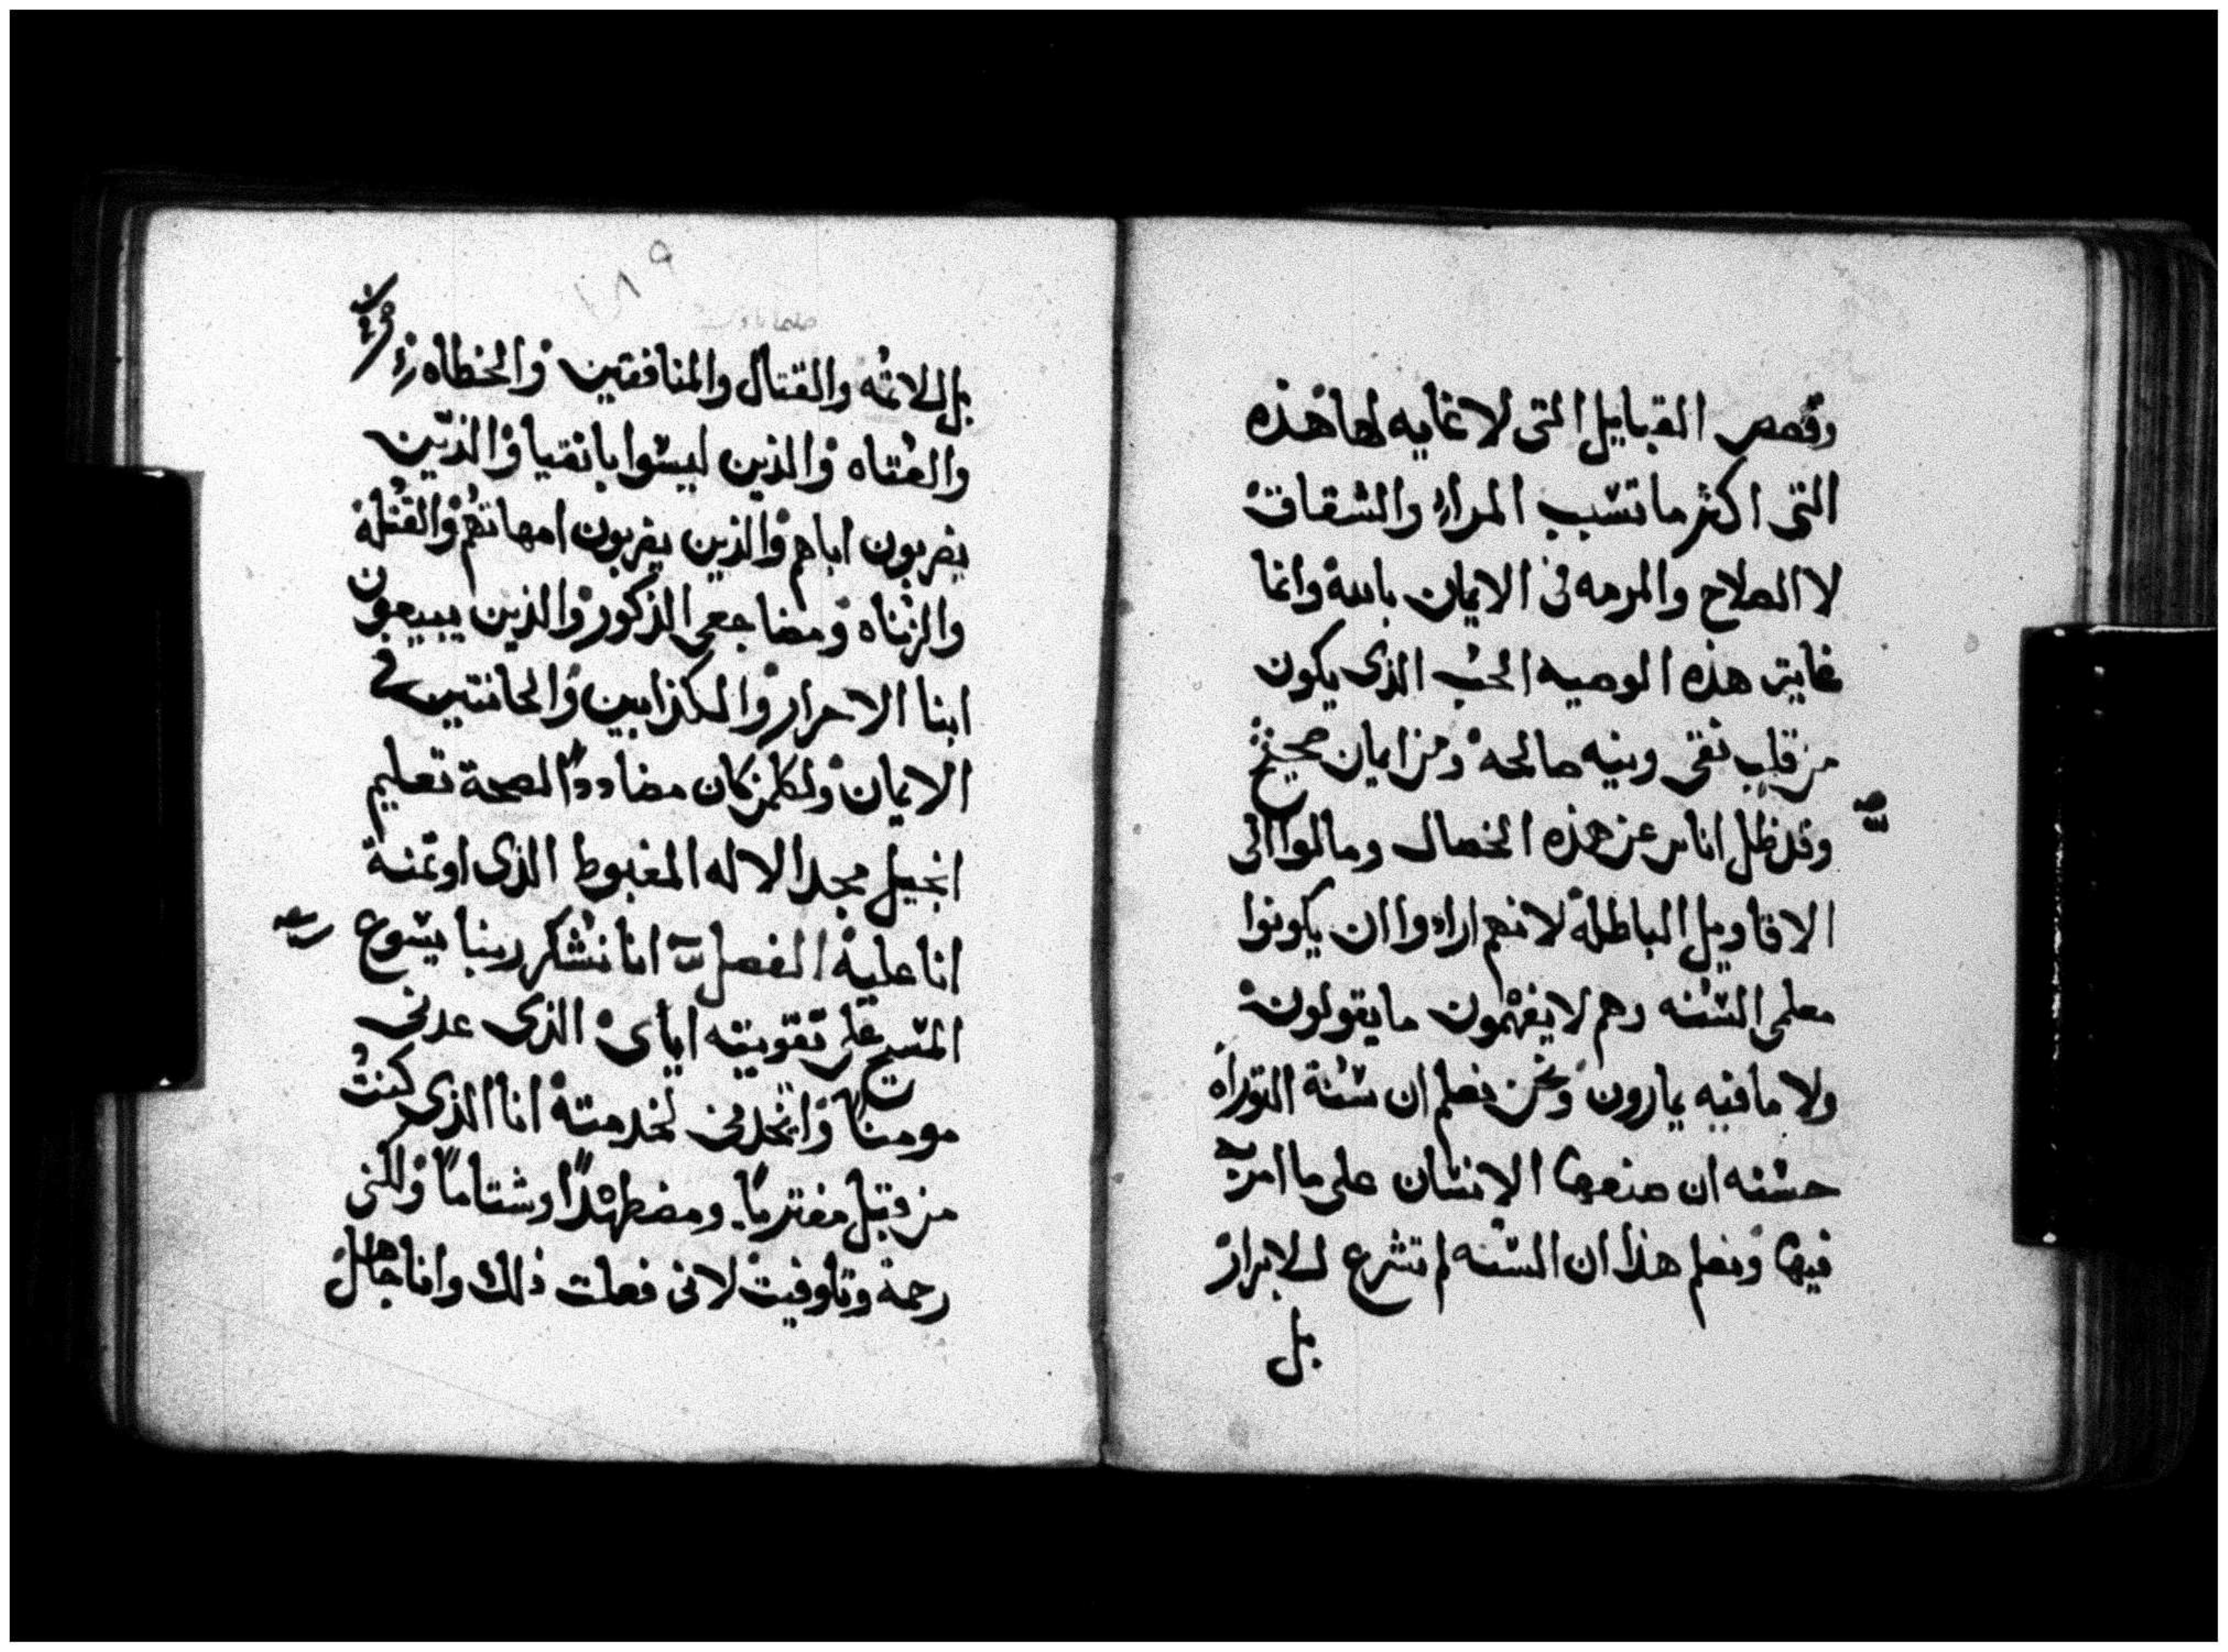 وقصص القبايل التى لا غايه لها هذه
التى اكثر ما تسبب المراء والشقاق
لا الصلاح والمرمه فى الايمان بالله وانما
غاية هذه الوصيه الحب الذى يكون
من قلب نقى ونيه صالحة ومن ايمان صحيح
وقد ظل اناس عن هذه الخصال ومالوا الى
الاقاويل الباطلة لانهم ارادوا ان يكونوا
معلمى السنه وهم لا يفهمون ما يقولون
ولا ما فيه يمارون ونحن نعلم ان سنة التوراه
حسنه ان صنعها الانسان على ما امر به
فيها ونعلم هذا ان السنه لم تشرع للابرار
بل
١٨٩
بل للاثمه والقتال والمنافقين والخطاه
والعتاه والذين ليسوا بانقيا والذين
يضربون اباهم والذين يضربون امهاتهم والقتلة
والزناه ومضاجعى الذكور والذين يبيعون
ابنا الاحرار والكذابين والحانثين فى
الايمان ولكلمن كان مضاددًا لصحة تعليم
انجيل مجد الاله المغبوط الذى اوتمنة
انا علية الفصل انا نشكر ربنا يسوع
المسيح على تقويته اياى الذى عدنى
مومنًا واتخدنى لخدمتة انا الذى كنت
من قبل مفتريًا ومضطهدًا وشتامًا ولكنى
رحمة وتلوفيت لانى فعلت ذلك وانا جاهل